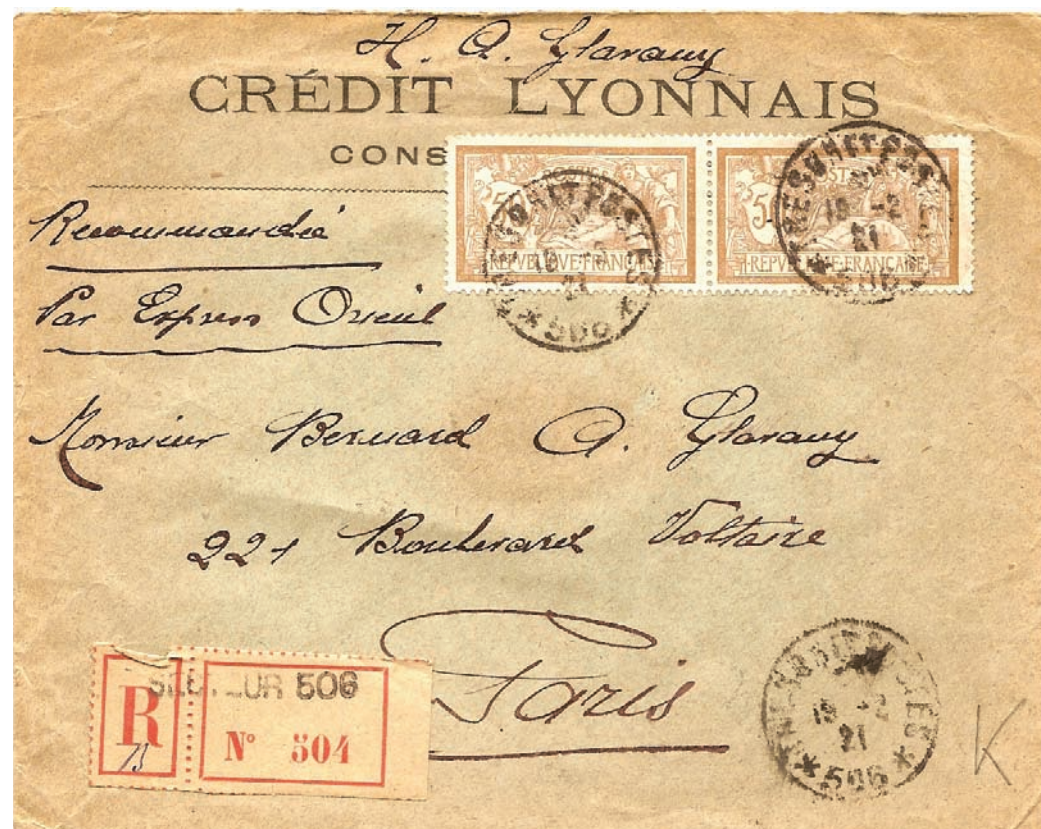 H. A. Glavany
CRÉDIT LYONNAIS
CONS
POSTES
50
REPUBLIQUE FRANÇAISE
REPUBLIQUE FRANÇAISE
TRESOR ET POSTES
19 -2
21
* 506 *
TRESOR ET POSTES
19 -2
21
Recommandée
Par Express Orient
Monsieur Bernard A. Glavany
221 Boulevard Voltaire
Paris
SECTEUR 506
R
N° 504
TRESOR ET POSTES
19 -2
21
* 506 *
K